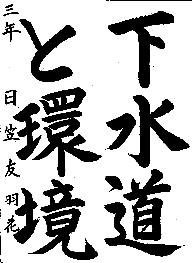 下水道
と環境
三年 日笠友羽花